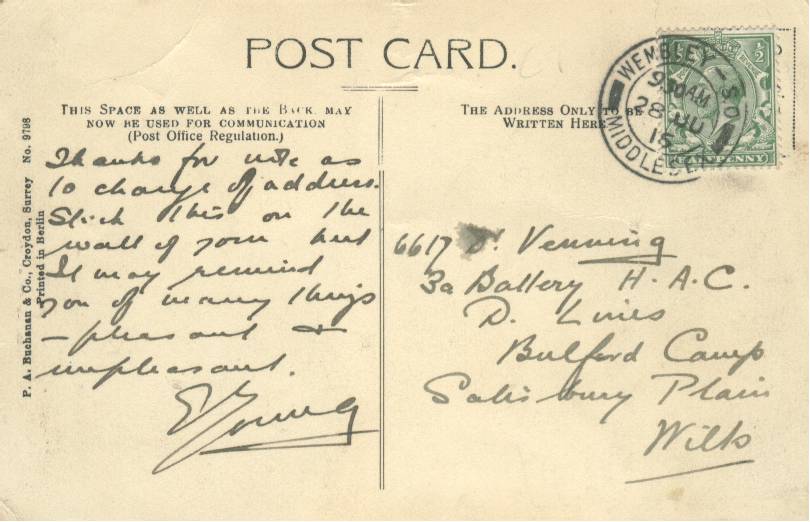 POST CARD.
THIS SPACE AS WELL AS THE BACK MAY
NOW BE USED FOR COMMUNICATION
(Post Office Regulation.)
THE ADDRESS ONLY TO BE
WRITTEN HERE
Thanks for note as
to change of address.
Stick this on the
wall of your hut
It may remind
you of many things
- pleasant &
unpleasant.
E Young
6617 D. Venning
3a Battery H.A.C.
D. Lines
Bulford Camp
Salisbury Plain
Wilts
P. A. Buchanan & Co., Croydon, Surrey No. 9798
Printed in Berlin
WEMBLEY - S.O.
9.30AM
28 JU
15
MIDDLESEX
½
HALFPENNY